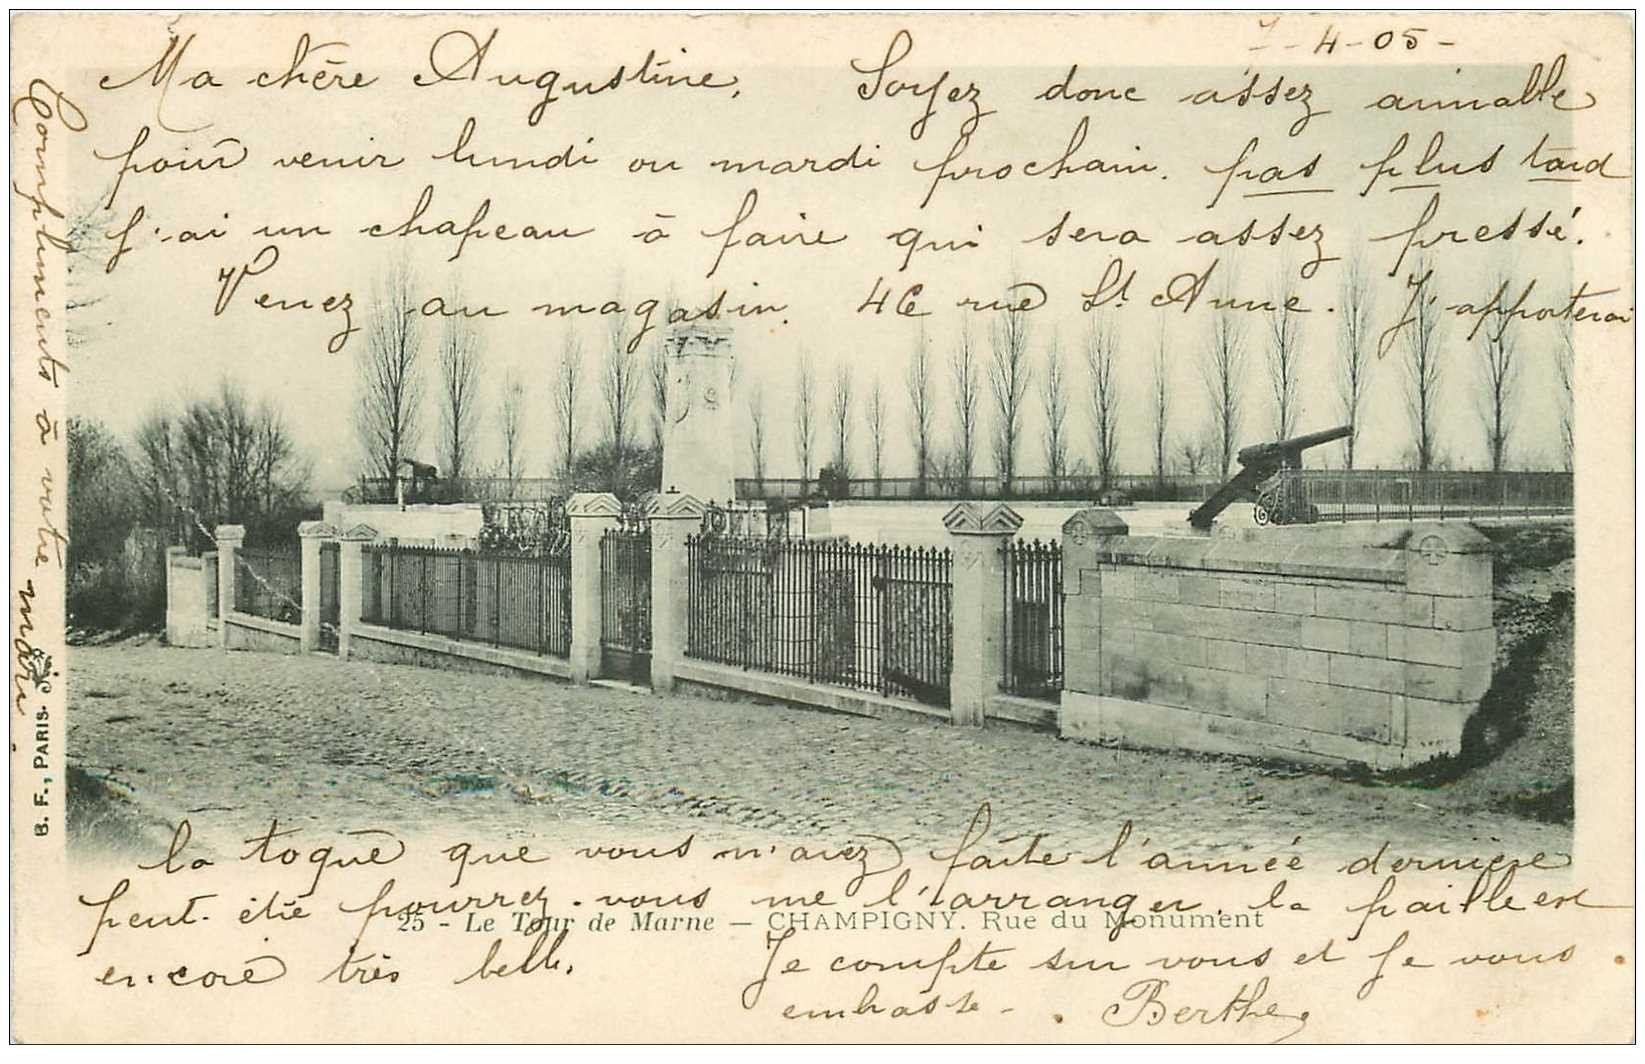 -4-05-
Ma chère Augustine, Soyez donc assez aimable
pour venir lundi ou mardi prochain. pas plus tard
j'ai un chapeau à faire qui sera assez pressé.
Venez au magasin. 46 rue St Anne. J'apporterai
la toque que vous m'avez faite l'année dernière
peut-être pourrez-vous me l'arranger. la paille est
25 - Le Tour de Marne — CHAMPIGNY. Rue du Monument
encore très belle. Je compte sur vous et je vous
embrasse - . Berthe
Compliments à votre mari.
B. F., PARIS